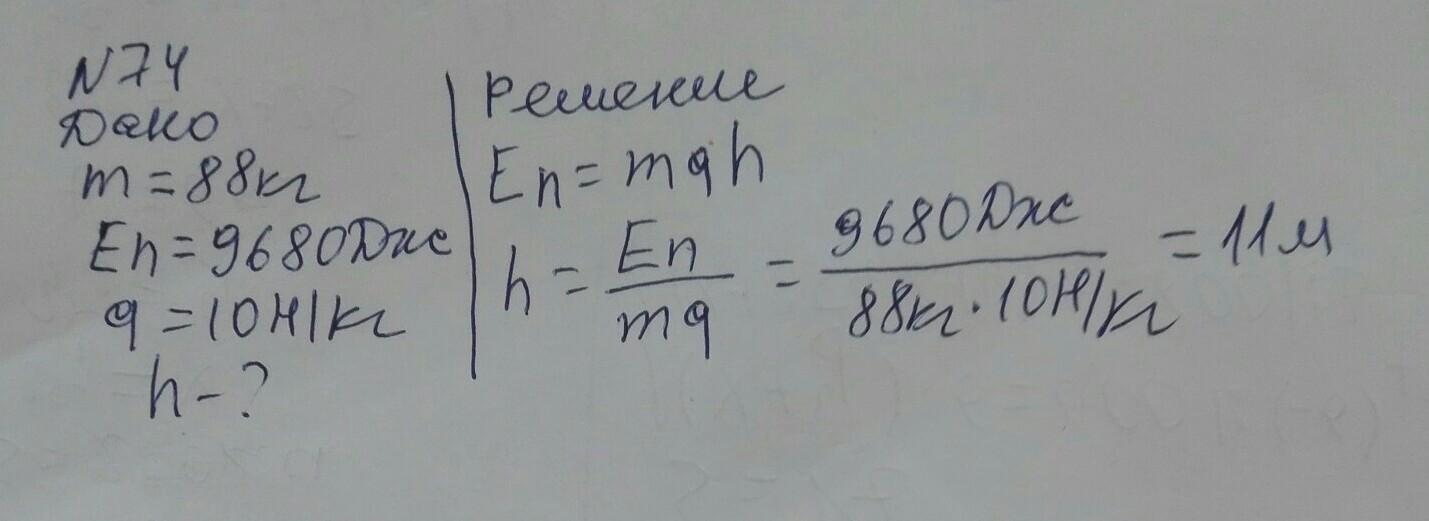 N74
Дано
m = 88кг
Eп = 9680Дж
g = 10Н/кг
h - ?
Решение
Eп = mgh
h = Eп/mg = 9680Дж/88кг·10Н/кг = 11м